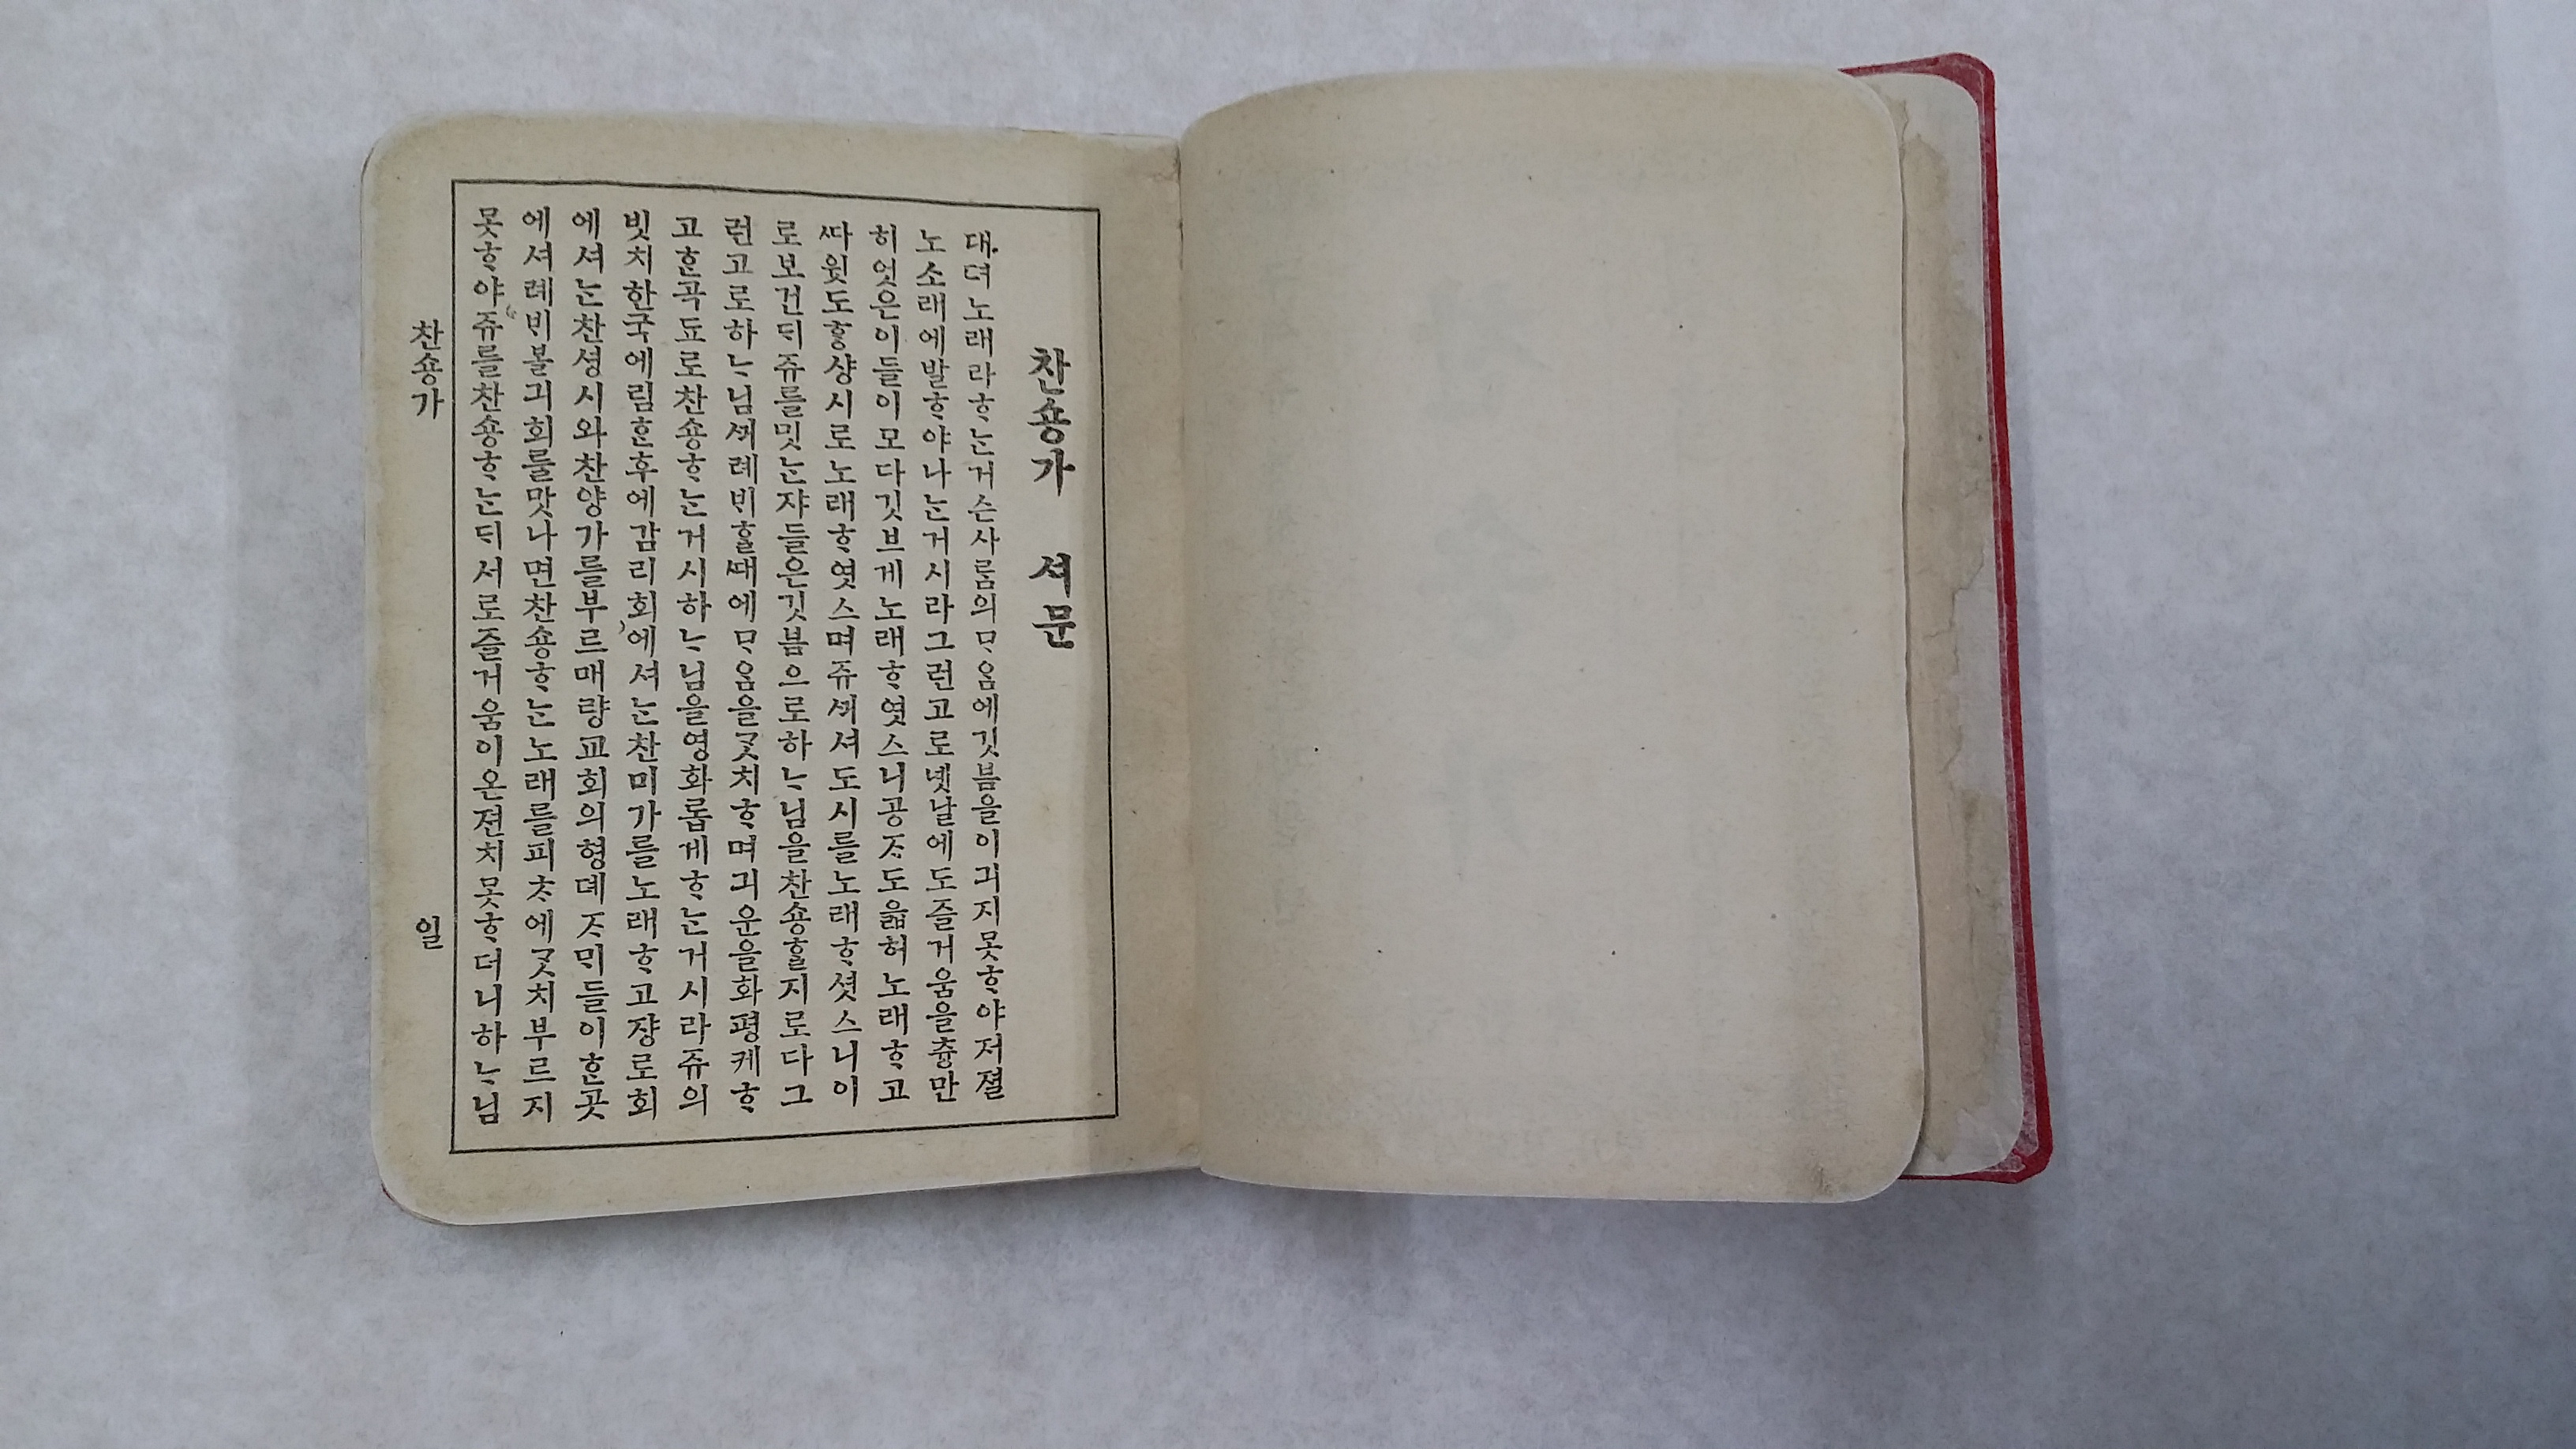 찬숑가 셔문
대뎌노래라ᄒᆞᄂᆞᆫ거슨사ᄅᆞᆷ의ᄆᆞᄋᆞᆷ에깃븜을이긔지못ᄒᆞ야저졀
노소래에발ᄒᆞ야나ᄂᆞᆫ거시라그런고로녯날에도즐거움을츙만
히엇은이들이모다깃브게노래ᄒᆞ엿스니공ᄌᆞ도읇허노래ᄒᆞ고
ᄯᅡ윗도ᄒᆞᆼ샹시로노래ᄒᆞ엿스며쥬ᄭᅴ셔도시를노래ᄒᆞ셧스니이
로보건ᄃᆡ쥬를밋ᄂᆞᆫ쟈들은깃븜으로하ᄂᆞ님을찬숑ᄒᆞᆯ지로다그
런고로하ᄂᆞ님ᄭᅴ례ᄇᆡᄒᆞᆯᄯᅢ에ᄆᆞᄋᆞᆷ을ᄀᆞᆺ치ᄒᆞ며긔운을화평케ᄒᆞ
고ᄒᆞᆫ곡됴로찬숑ᄒᆞᄂᆞᆫ거시하ᄂᆞ님을영화롭게ᄒᆞᄂᆞᆫ거시라쥬의
빗치한국에림ᄒᆞᆫ후에감리회에셔ᄂᆞᆫ찬미가를노래ᄒᆞ고쟝로회
에셔ᄂᆞᆫ찬셩시와찬양가를부르매량교회의형뎨ᄌᆞᄆᆡ들이ᄒᆞᆫ곳
에셔례ᄇᆡ볼긔회를맛나면찬숑ᄒᆞᄂᆞᆫ노래를피ᄎᆞ에ᄀᆞᆺ치부르지
못ᄒᆞ야쥬를찬숑ᄒᆞᄂᆞᆫᄃᆡ서로즐거움이온젼치못ᄒᆞ더니하ᄂᆞ님
찬숑가 일